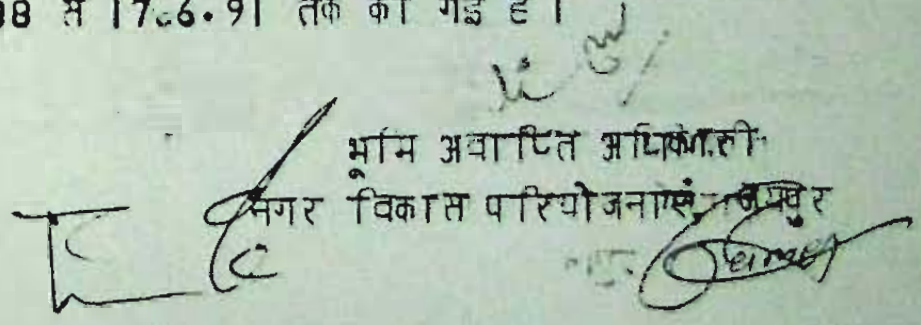 88 से 17.6.91 तक की गई है।
भूमि अवाप्ति अधिकारी
नगर विकास परियोजनाएं, जयपुर